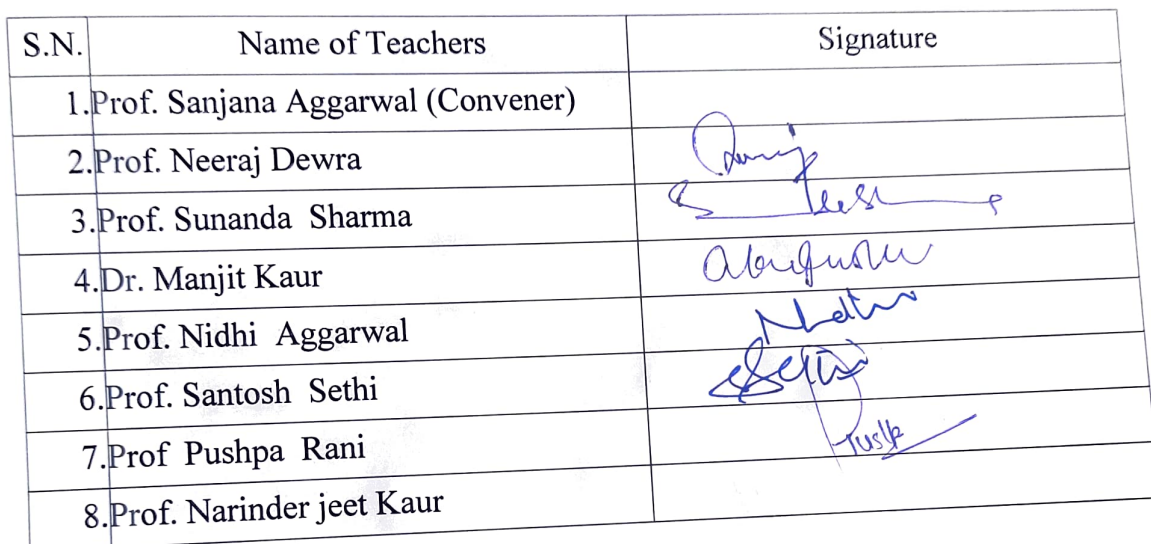 S.N. Name of Teachers Signature
1.Prof. Sanjana Aggarwal (Convener)
2.Prof. Neeraj Dewra
3.Prof. Sunanda Sharma
4.Dr. Manjit Kaur
5.Prof. Nidhi Aggarwal
6.Prof. Santosh Sethi Sethi
7.Prof Pushpa Rani
8.Prof. Narinder jeet Kaur